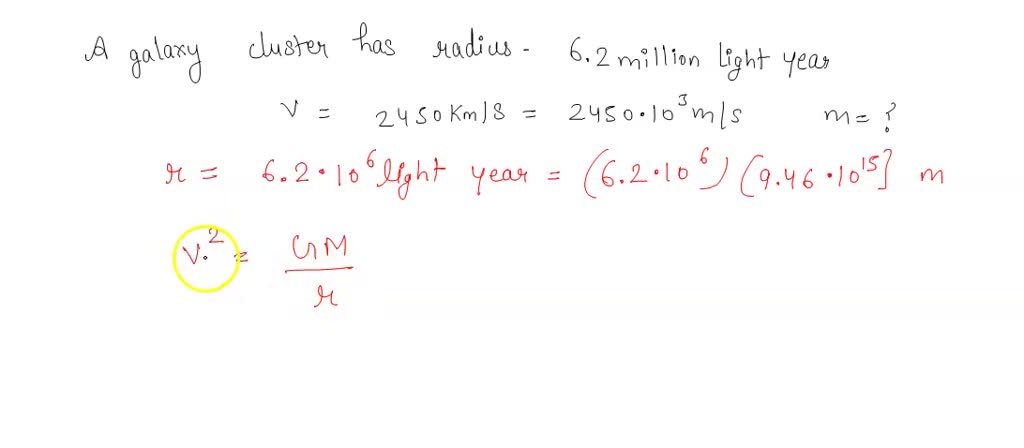 A galaxy cluster has radius - 6.2 million light year
v = 2450 Km/s = 2450 · 10³ m/s m = ?
r = 6.2 · 10⁶ light year = (6.2 · 10⁶) (9.46 · 10¹⁵] m
v.² = GM
r